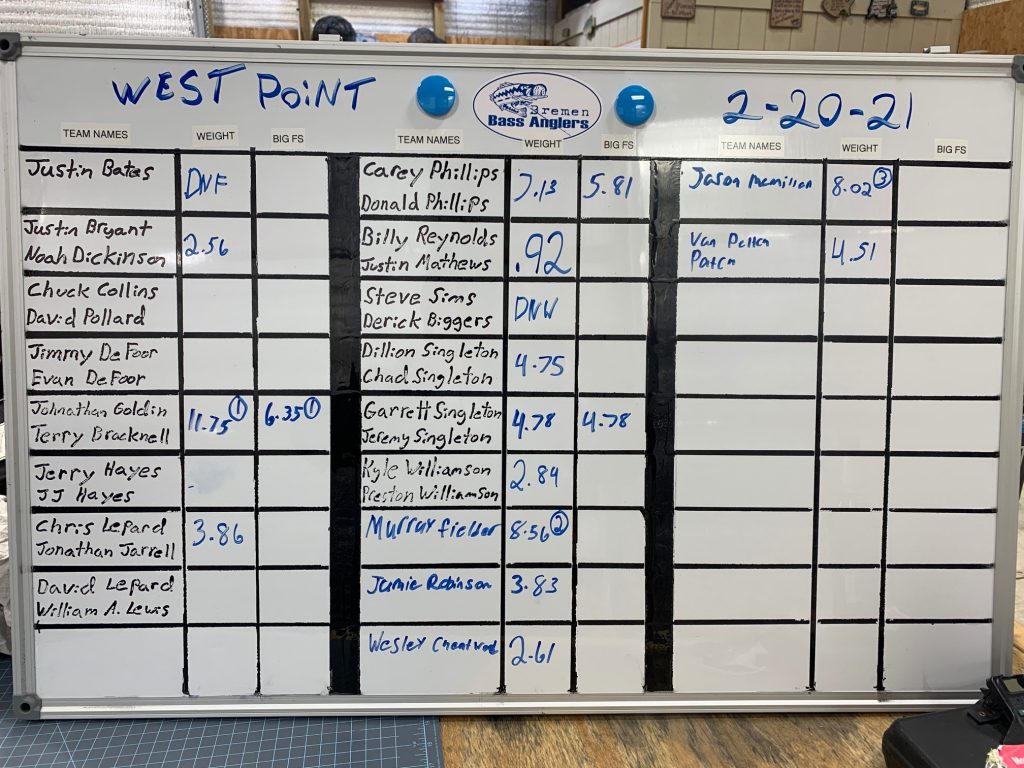 WEST POINT
Bremen
Bass Anglers
2-20-21
TEAM NAMES WEIGHT BIG FS
Justin Bates DNF
Justin Bryant
Noah Dickinson 2.56
Chuck Collins
David Pollard
Jimmy DeFoor
Evan DeFoor
Johnathan Goldin
Terry Bracknell 11.75 ① 6.35 ①
Jerry Hayes
JJ Hayes
Chris Lepard
Jonathan Jarrell 3.86
David Lepard
William A. Lewis
TEAM NAMES WEIGHT BIG FS
Carey Phillips
Donald Phillips 7.13 5.81
Billy Reynolds
Justin Mathews .92
Steve Sims
Derick Biggers DNW
Dillion Singleton
Chad Singleton 4.75
Garrett Singleton
Jeremy Singleton 4.78 4.78
Kyle Williamson
Preston Williamson 2.84
Murray fielder 8.56 ②
Jamie Robinson 3.83
Wesley 2.61
TEAM NAMES WEIGHT BIG FS
Jason 8.02 ③
Van Patten
4.51